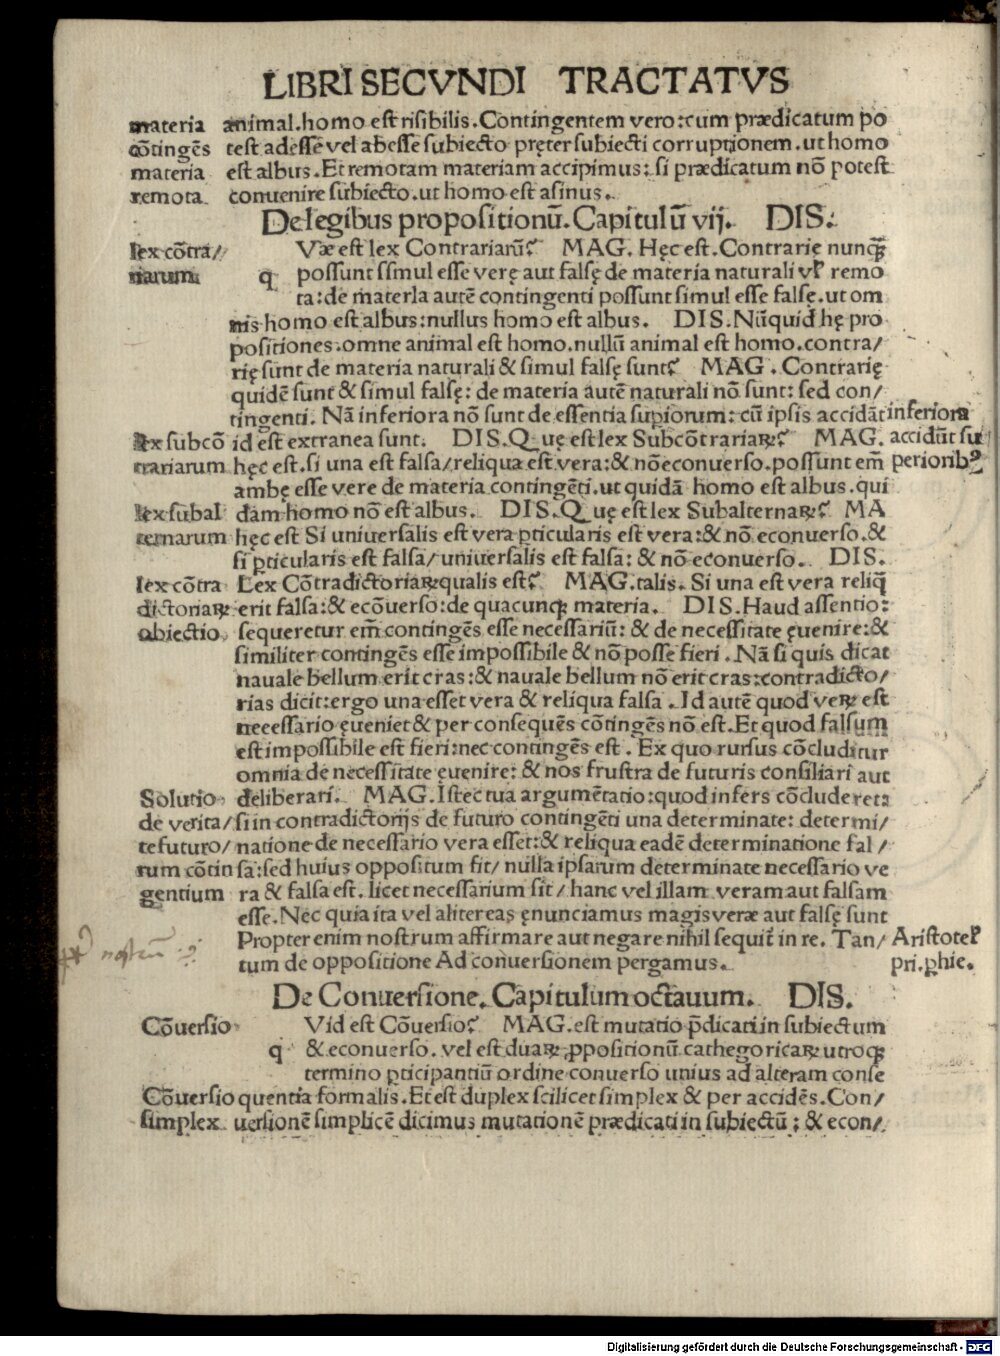 LIBRI SECVNDI TRACTATVS
materia animal.homo est risibilis.Contingentem vero:cum prædicatum po
cōtingēs test adesse vel abesse subiecto pręter subiecti corruptionem.ut homo
materia est albus.Et remotam materiam accipimus: si prædicatum nō potest
remota conuenire subiecto.ut homo est asinus.
De legibus propositionū.Capitulū vij. DIS.
lex cōtra/ Væ est lex Contrariarū? MAG. Hęc est.Contrarię nunqꝫ
riarum q possunt simul esse verę aut falsę de materia naturali vl̕ remo
ta:de materia autē contingenti possunt simul esse falsę.ut om
nis homo est albus:nullus homo est albus. DIS.Nūquid hę pro
positiones:omne animal est homo.nullū animal est homo.contra/
rię sunt de materia naturali & simul falsę sunt? MAG. Contrarię
quidē sunt & simul falsę: de materia autē naturali nō sunt: sed con/
tingenti. Nā inferiora nō sunt de essentia supiorum: cū ipsis accidāt inferiora
lex subcō id est extranea sunt. DIS.Q uę est lex Subcōtrariaꝝ? MAG. accidūt su
trariarum hęc est.si una est falsa/reliqua est vera:& nōeconuerso.possunt em̄ periorib⁹
ambę esse vere de materia contingēti.ut quidā homo est albus.qui
lex subal dam homo nō est albus. DIS.Q uę est lex Subalternaꝝ? MA
ternarum hęc est Si uniuersalis est vera ꝑticularis est vera:& nō econuerso.&
si ꝑticularis est falsa/ uniuersalis est falsa: & nō econuerso. DIS.
lex cōtra Lex Cōtradictoriaꝝ qualis est? MAG.talis. Si una est vera reliq̄
dictoriaꝝ erit falsa:& ecōuerso:de quacunqꝫ materia. DIS.Haud assentio:
obiectio sequeretur em̄ contingēs esse necessariū: & de necessitate ęuenire:&
similiter contingēs esse impossibile & nō posse fieri. Nā si quis dicat
nauale bellum erit cras:& nauale bellum nō erit cras:contradicto/
rias dicit:ergo una esset vera & reliqua falsa. Id autē quod veꝝ est
necessario ęueniet & per consequēs cōtingēs nō est.Et quod falsum
est impossibile est fieri:nec contingēs est. Ex quo rursus cōcluditur
omnia de necessitate euenire: & nos frustra de futuris consiliari aut
Solutio deliberari. MAG.Istec tua argumētatio:quod infers cōcluderet:
de verita/ si in contradictorijs de futuro contingēti una determinate: determi/
te futuro/ natione de necessario vera esset:& reliqua eadē determinatione fal/
rum cōtin sa:sed huius oppositum fit/ nulla ipsarum determinate necessario ve
gentium ra & falsa est. licet necessarium sit/ hanc vel illam veram aut falsam
esse.Nec quia ita vel aliter eas ęnunciamus magis veræ aut falsę sunt
Propter enim nostrum affirmare aut negare nihil sequit̄ in re. Tan/ Aristotel̕
tum de oppositione Ad conuersionem pergamus. pri.phie.
De Conuersione.Capitulum octauum. DIS.
Cōuersio Vid est Cōuersio? MAG.est mutatio p̄dicati in subiectum
q & econuerso. vel est duaꝝ ꝓpositionū cathegoricaꝝ utroqꝫ
termino ꝑticipantiū ordine conuerso unius ad alteram conse
Cōuersio quentia formalis. Et est duplex scilicet simplex & per accidēs.Con/
simplex uersionē simplicē dicimus mutationē prædicati in subiectū; & econ/
Digitalisierung gefördert durch die Deutsche Forschungsgemeinschaft - DFG